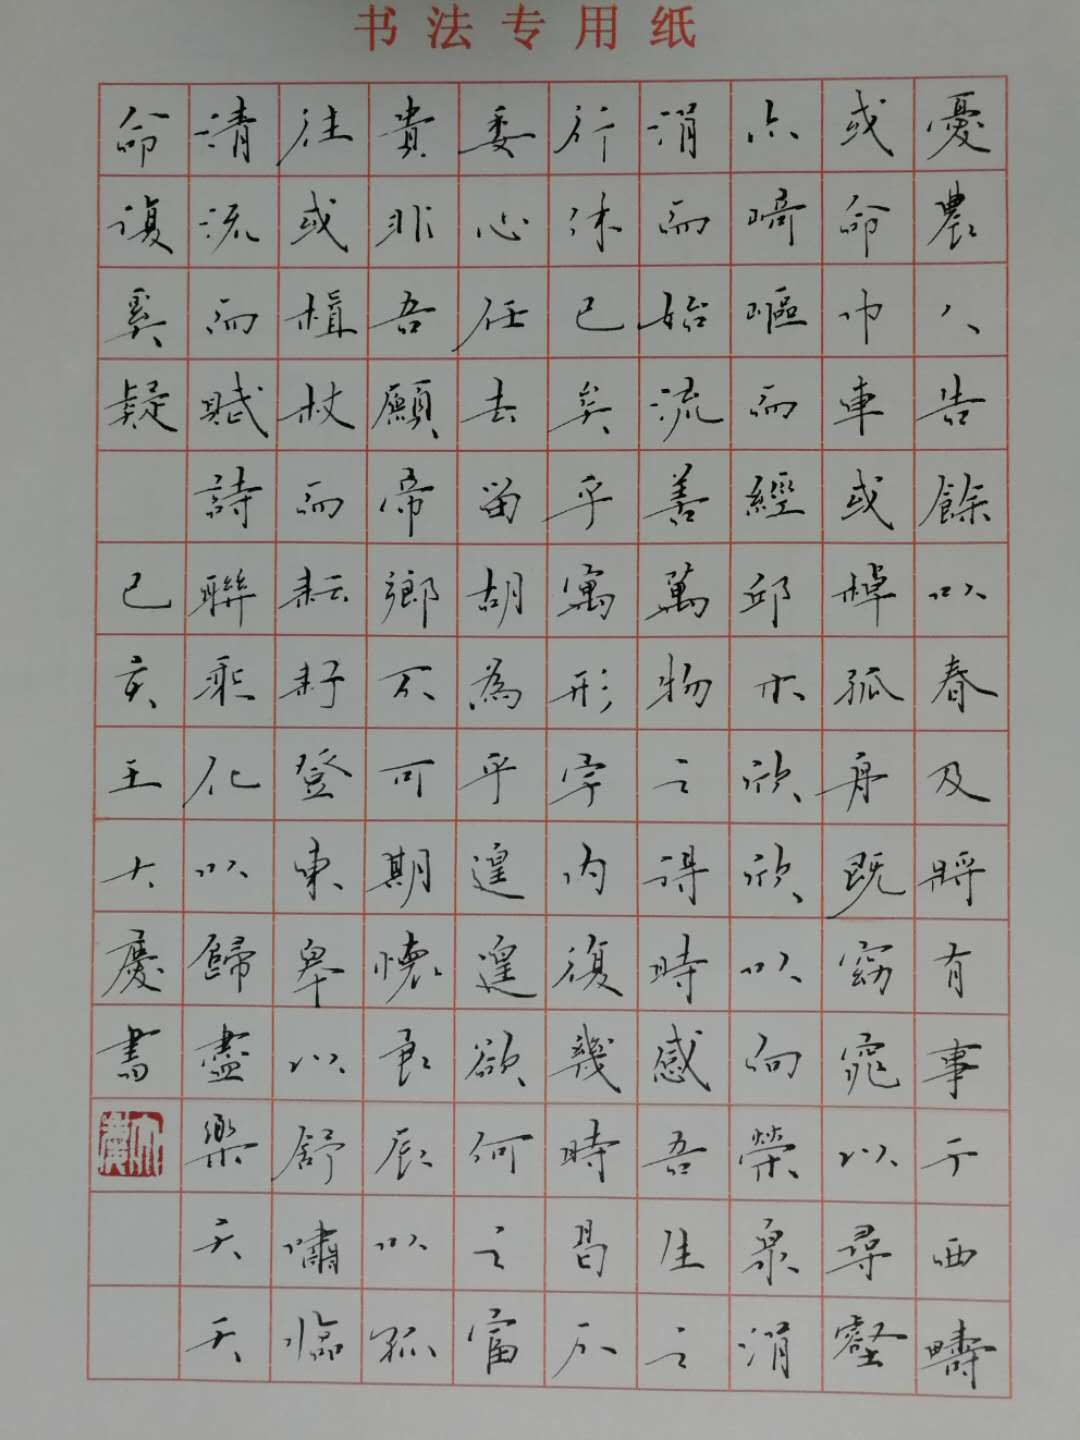 书法专用纸
憂農人告餘以春及將有事于西疇
或命巾車或棹孤舟既窈窕以尋壑
亦崎嶇而經邱木欣欣以向榮泉涓
涓而始流善萬物之得時感吾生之
行休已矣乎寓形宇內復幾時曷不
委心任去留胡為乎遑遑欲何之富
貴非吾願帝鄉不可期懷良辰以孤
往或植杖而耘耔登東皋以舒嘯臨
清流而賦詩聊乘化以歸盡樂夫天
命復奚疑 己亥王大慶書